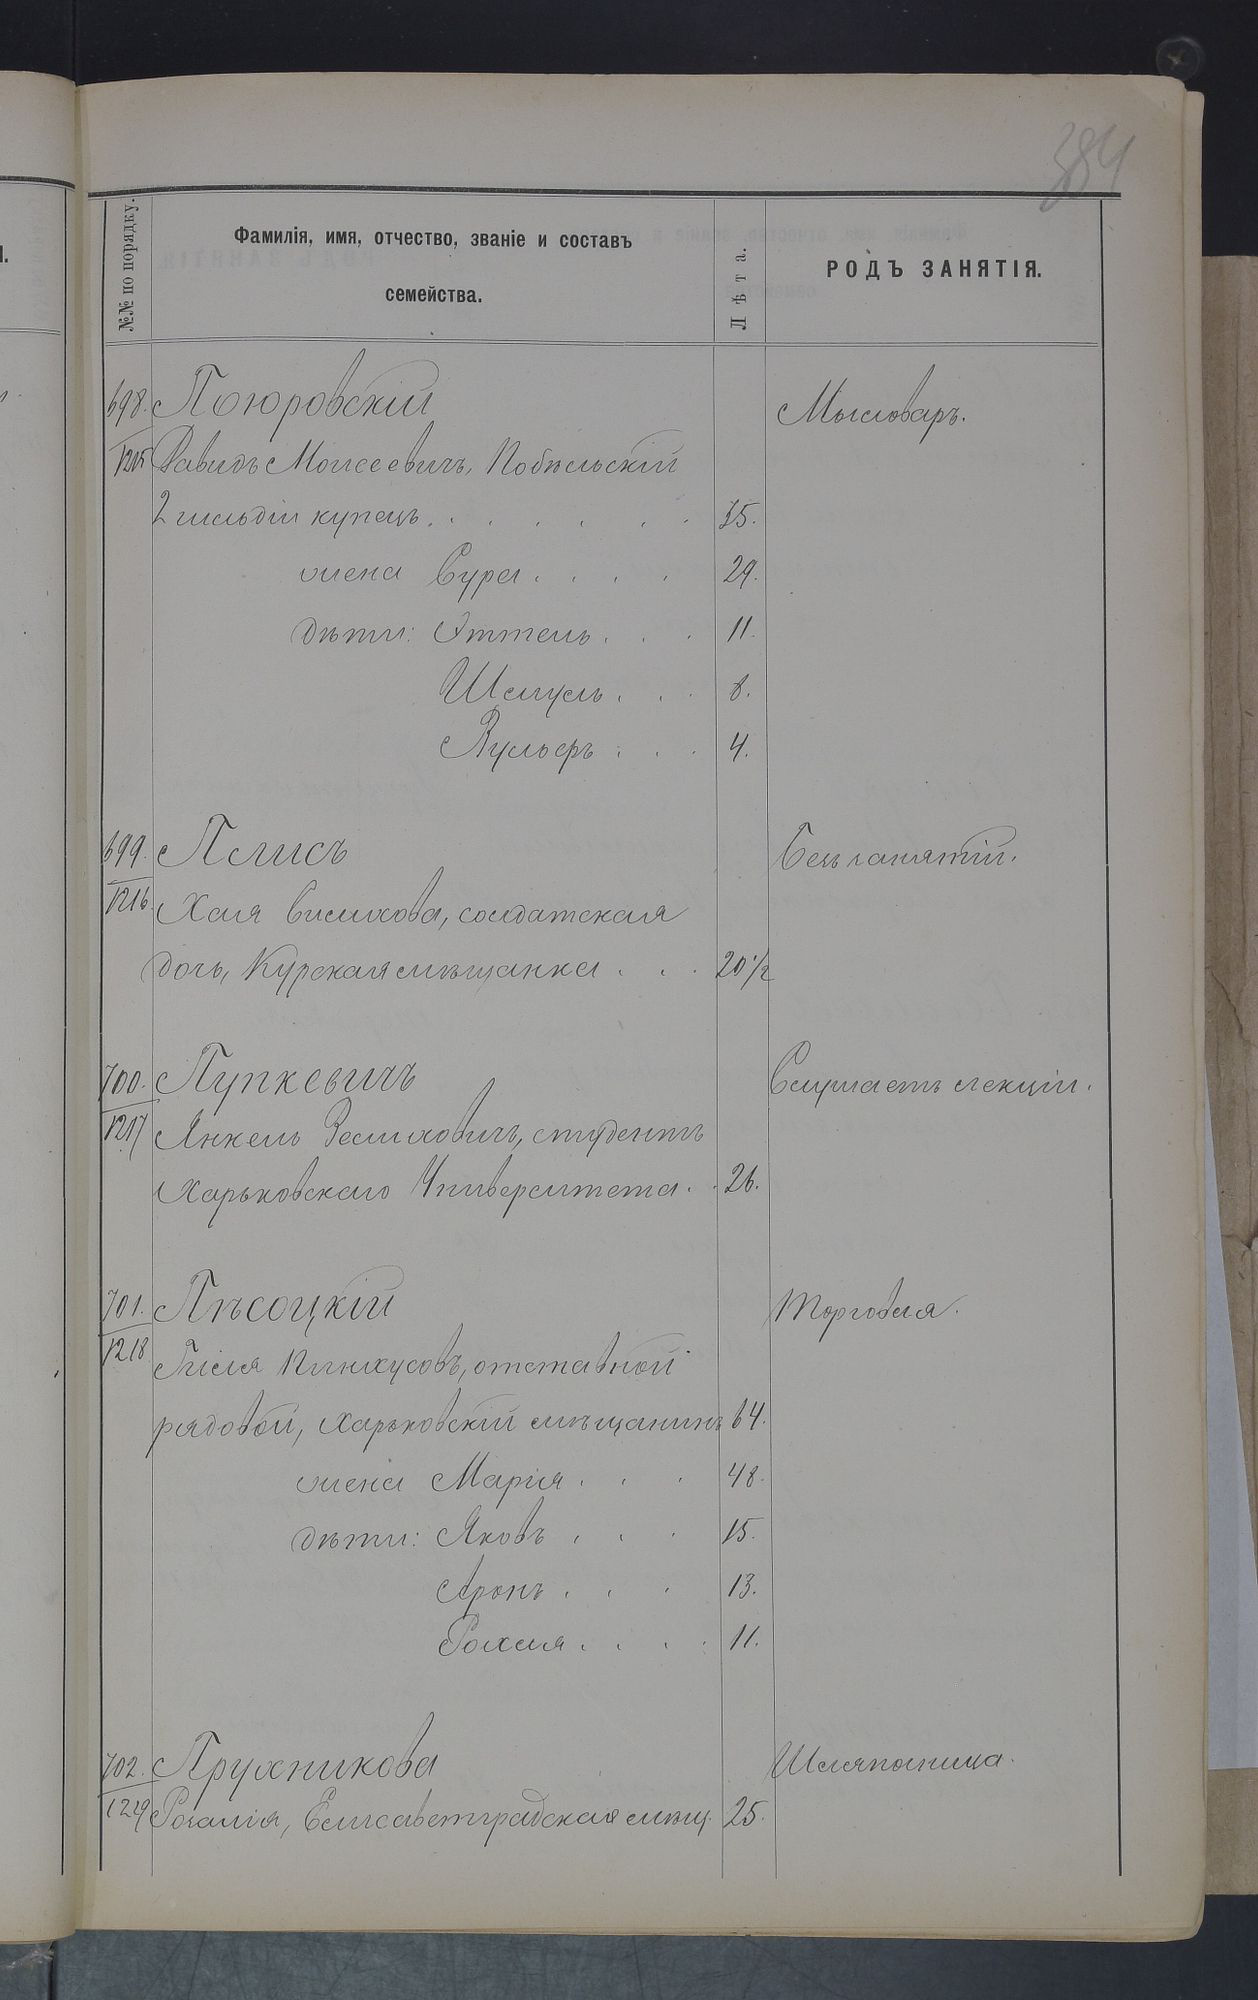 384
№№ по порядку.
Фамилія, имя, отчество, званіе и составъ
семейства.
Лѣта.
РОДЪ ЗАНЯТІЯ.
698. Поюровскій Мыловаръ.
1215 Давидъ Моисеевичъ, Кобыльскій
2 гильдіи купецъ. . . . . . 35.
жена Сура . . . . 29.
дѣти: Эттель . . . 11.
Шмуль . . . 8.
Вульфъ . . . 4.
699. Плисъ Безъ занятій.
1216. Хая, солдатская
дочь, Курская мѣщанка . . . 20 1/2
700. Пупкевичъ Слушаетъ лекціи.
1217 Янкель Зелиховичъ, студентъ
Харьковскаго Университета . . 26.
701. Пѣсоцкій Торговля.
1218 Пинхусовъ, отставной
рядовой, Харьковскій мѣщанинъ 64.
жена Марія . . . 48.
дѣти: Яковъ . . . 15.
Аронъ . . . 13.
Рахля . . . . 11.
702. Пружникова Шляпочница.
1219 Розалія, Елисаветградская мѣщ. 25.